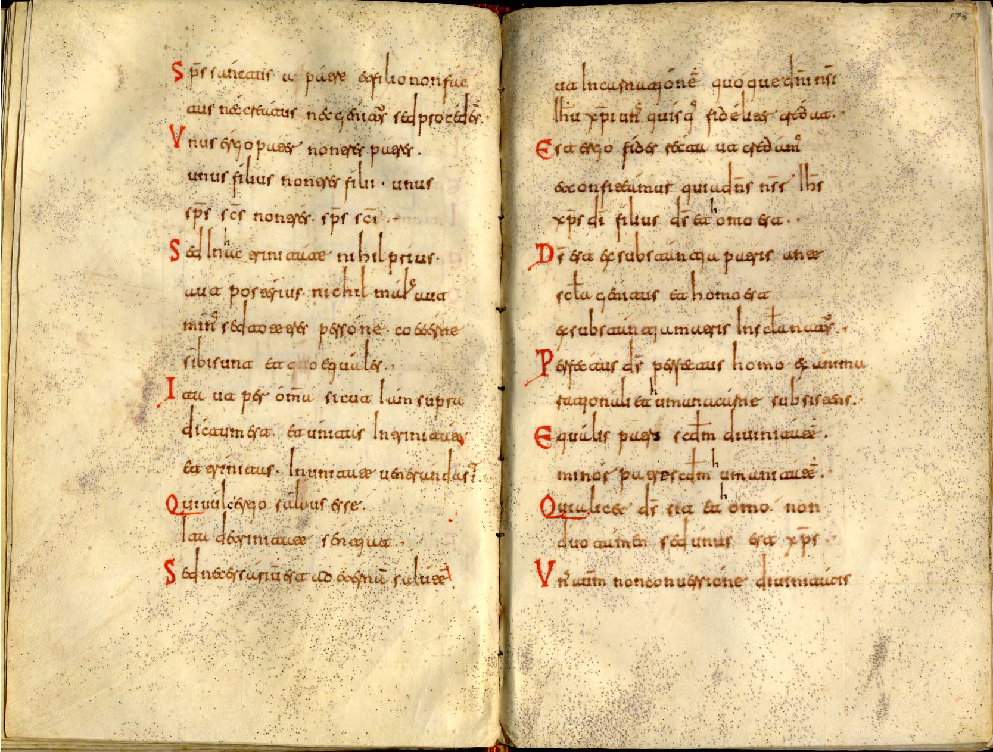 Sp̄s sanctus a patre et filio non fac
tus nec creatus nec genitus sed procedēs.
Unus ergo pater non tres patres.
unus filius non tres filii · unus
sp̄s sc̄s non tres sp̄s sc̄i ·
Sed In hac trinitate nihil prius·
aut posterius· nichil maius aut
minus sed tote tres persone coeterne
sibi sunt et quo equales·
Ita ut per omnia sicut Iam supra
dictum est. et unitas In trinitate
et trinitas· In unitate ueneranda sit
Qui uult ergo saluus esse·
Ita de trinitate sentiat·
Sed necessarium est ad eternā salutē
173
ut Incarnationē quoque dn̄i nr̄i
Ih̄u xp̄i unusquisq; fideliter credat·
Est ergo fides recta ut credamus
et confiteamur quia dn̄s nr̄s Ih̄s
xp̄s di filius ds et homo est·
Ds est ex substantia patris ante
scl̄a genitus et homo est
ex substantia matris In sclo natus·
Perfectus ds perfectus homo ex anima
rationali et humana carne subsistens·
Equalis patri scdm diuinitatē·
minor patre scdm humanitatē·
Qui licet ds sit et homo· non
duo tamen sed unus est xp̄s·
Unus autem non conuersione diuinitatis